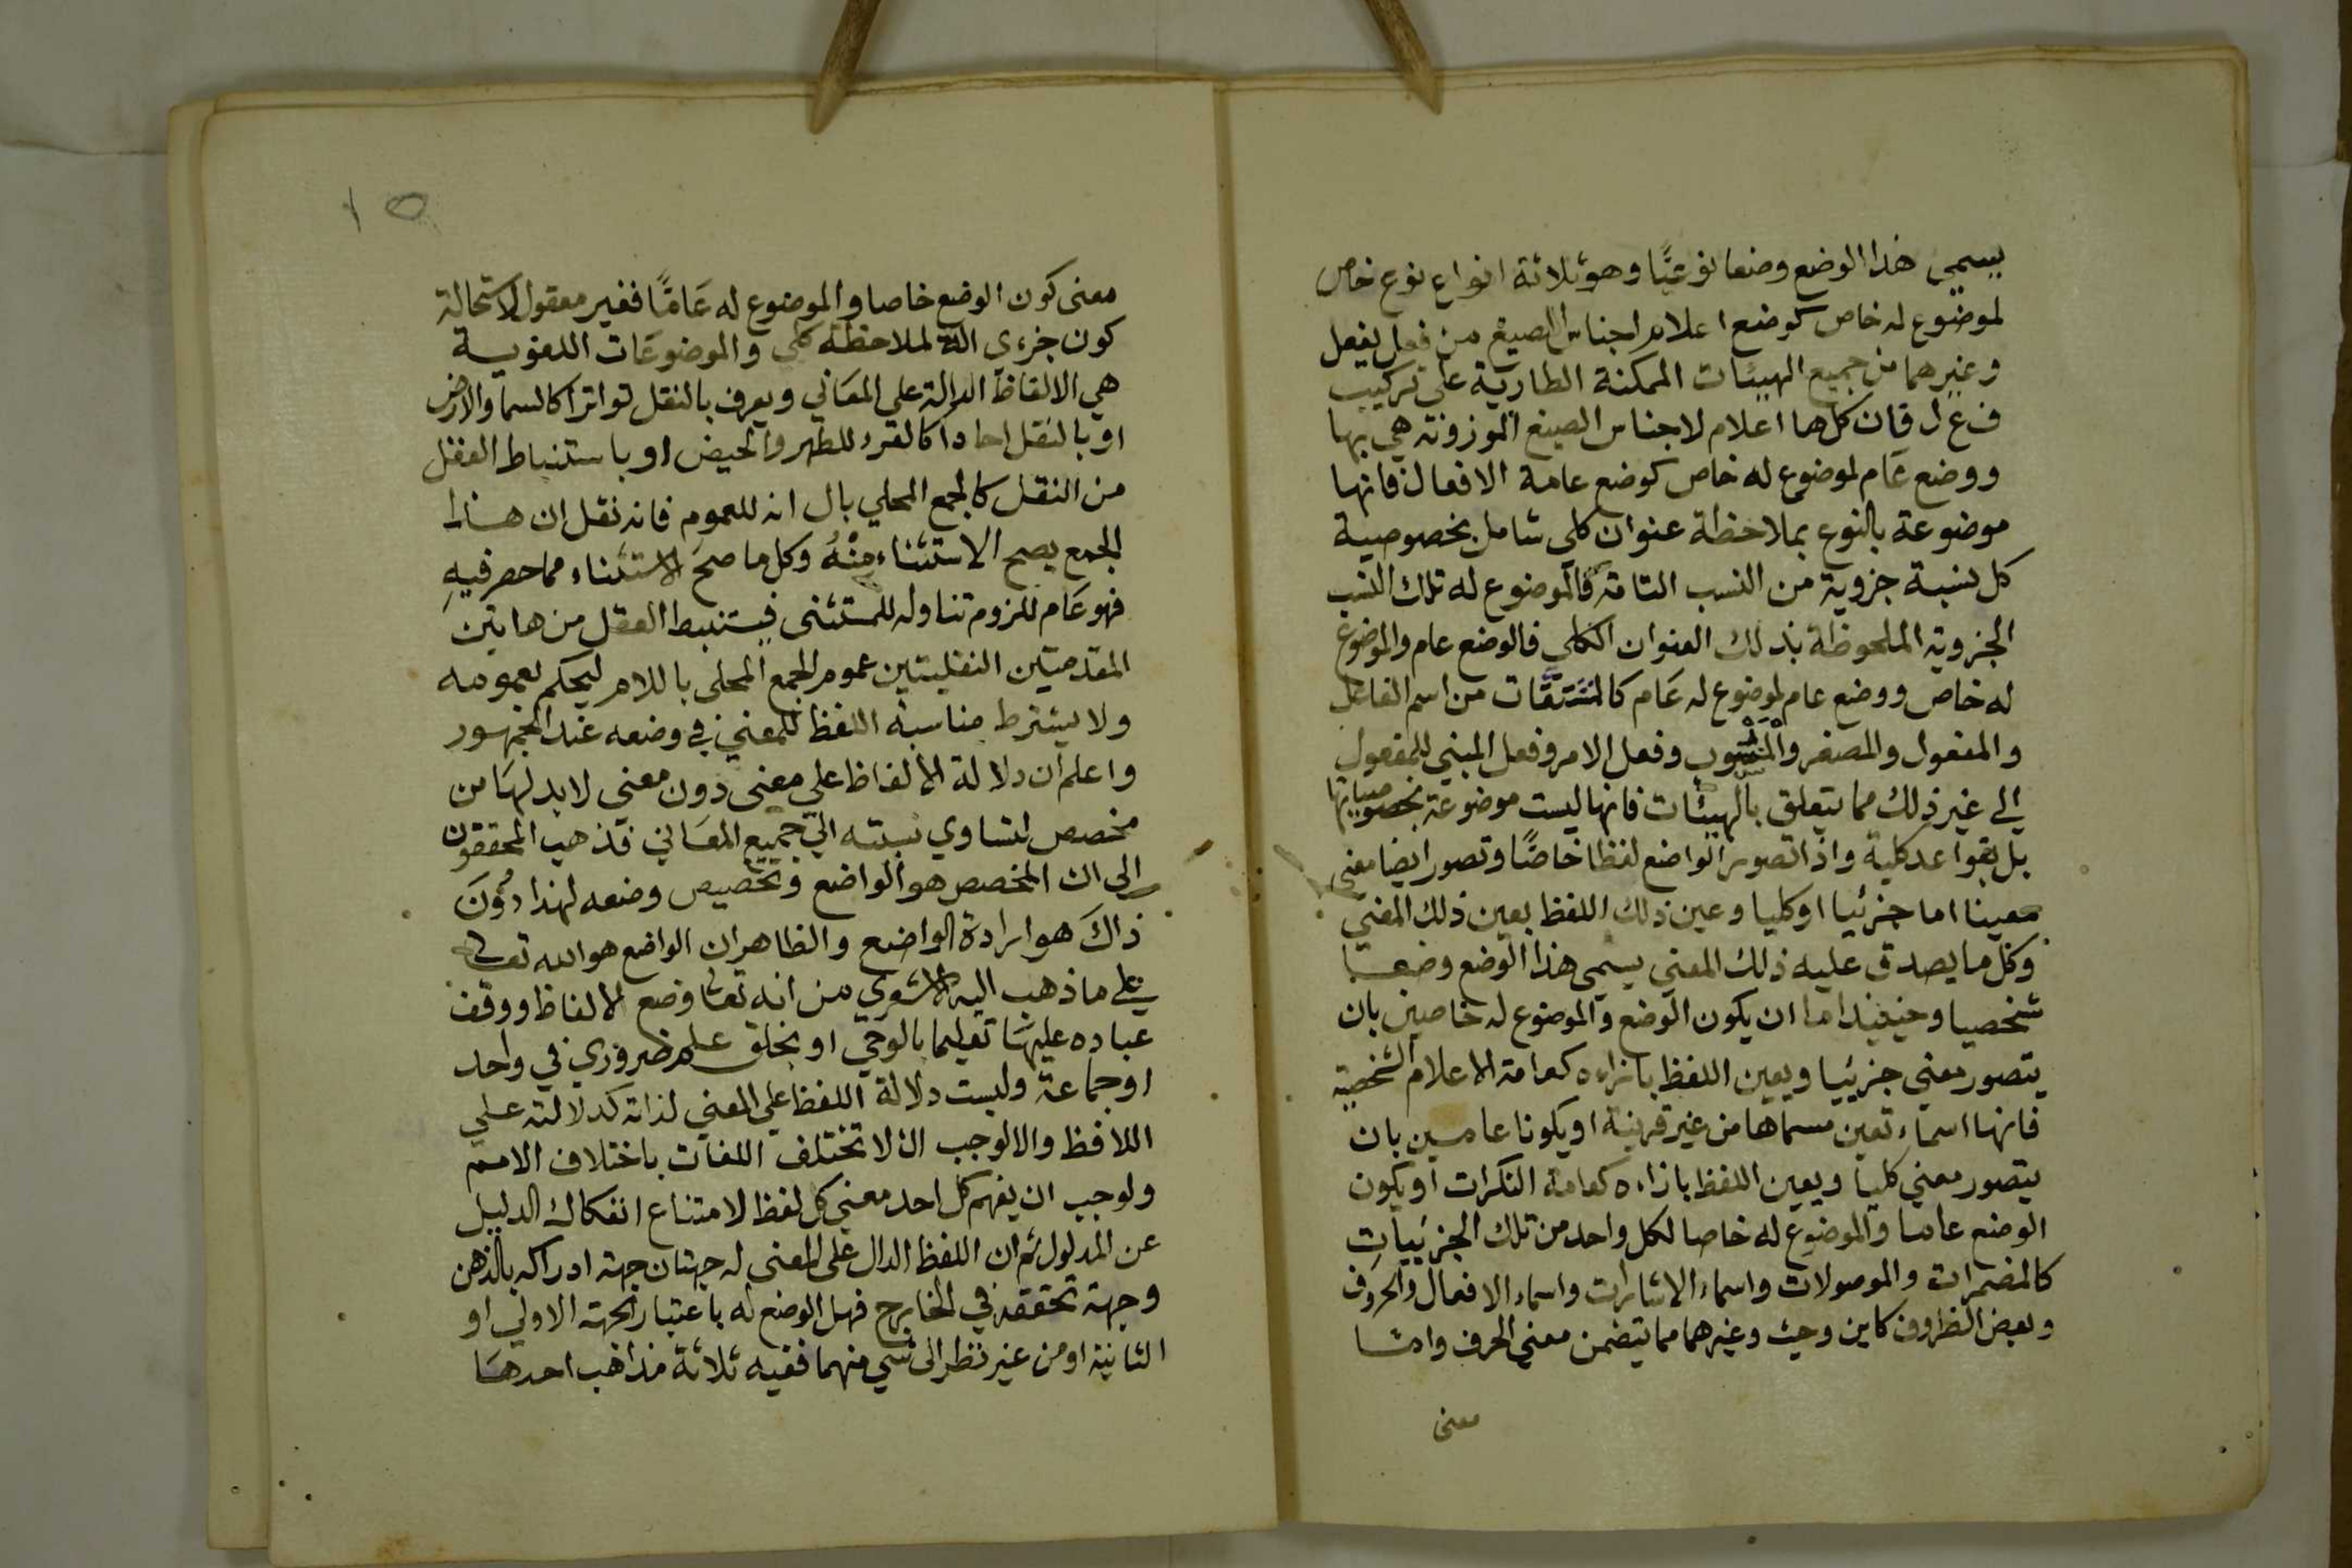 يسمى هذا الوضع وضعا نوعيًّا وهو ثلاثة انواع نوع خاص
لموضوع له خاص كوضع اعلام اجناس الصيغ من فعل يفعل
وغيرهما من جميع الهيئات الممكنة الطارية على تركيب
ف ع ل فان كلها اعلام لاجناس الصيغ الموزونة هي بها
ووضع عَام لموضوع له خاص كوضع عامة الافعال فانها
موضوعة بالنوع بملاحظة عنوان كلى شامل بخصوصية
كل نسبة جزوية من النسب التامة فالموضوع له تلك النسب
الجزوية الملحوظة بذلك العنوان الكلي فالوضع عام والموضوع
له خاص ووضع عام لموضوع له عَام كالمشتقَّات من اسم الفاعل
والمفعول والمصغر والمنسوب وفعل الامر وفعل المبني للمفعول
الي غير ذلك مما يتعلق بالهيئات فانها ليست موضوعة بخصوصياتها
بل بقواعد كلية واذا تصور الواضع لفظا خاصًّا وتصور ايضا معنى
معينا اما جزئيا او كليا وعين ذلك اللفظ بعين ذلك المعني
وكل ما يصدق عليه ذلك المعني يسمى هذا الوضع وضعـا
شخصيا وحينيذ اما ان يكون الوضع والموضوع له خاصين بان
يتصور معني جزييا ويعين اللفظ بازاءه كعامة الاعلام الشخصية
فانها اسماء تعين مسماها من غير قرينة او يكونا عامين بان
يتصور معني كليا ويعين اللفظ بازاءه كعامة النكرات او يكون
الوضع عاما والموضوع له خاصا لكل واحد من تلك الجزييات
كالمضمرات والموصولات واسماء الاشارات واسماء الافعال والحروف
وبعض الظروف كاين وحيث وغيرهما مما يتضمن معني الحرف وامـا
معنى
١٥
معنى كون الوضع خاصا والموضوع له عَامًّا فغير معقول لاستحالة
كون جزءى الة لملاحظة كلي والموضوعَات اللغويـة
هي الالفاظ الدالة على المعَاني ويعرف بالنقل تواترا كالسما والارض
او بالنقل احادا كالقرء للطهر والحيض او باستنباط العقل
من النقل كالجمع المحلي بال انه للعموم فانه نقل ان هـذا
الجمع يصح الاستثناء مِنْهُ وكل ما صحَ الاستثناء مما حصر فيهِ
فهو عَام للزوم تناوله للمستثنى فيستنبط العقل من هاتين
المقدمتين النقليتين عموم الجمع المحلى باللام ليحكم بعمومه
ولا يشترط مناسبة اللفظ للمعني في وضعه عند الجمهور
واعلم ان دلالة الالفاظ على معنى دون معنى لا بد لهَا من
مخصص لتساوي نسبته الى جميع المعَاني فذهب المحققون
الى ان المخصص هو الواضع وتخصيص وضعه لهذا دُوُنَ
ذاكَ هو ارادة الواضع والظاهر ان الواضع هو الله تعـالى
على ما ذهب اليه الاشعري من انه تعـا وضع الالفاظ ووقف
عباده عليهـا تعليما بالوحي او بخلق علم ضروري في واحد
او جماعة وليست دلالة اللفظ علي المعني لذاته كدلالته علـي
اللافظ والا لوجب ان لا تختلف اللغات باختلاف الامـم
ولوجب ان يفهم كل احد معني كل لفظ لامتناع انفكاك الدليل
عن المدلول ثم ان اللفظ الدال على المعنى له جهتان جهة ادراكه بالذهن
وجهة تحققه في الخارج فهل الوضع له باعتبار الجهة الاولي او
الثانية او من غير نظر الى شي منهما ففيه ثلاثة مذاهب احدهَـا